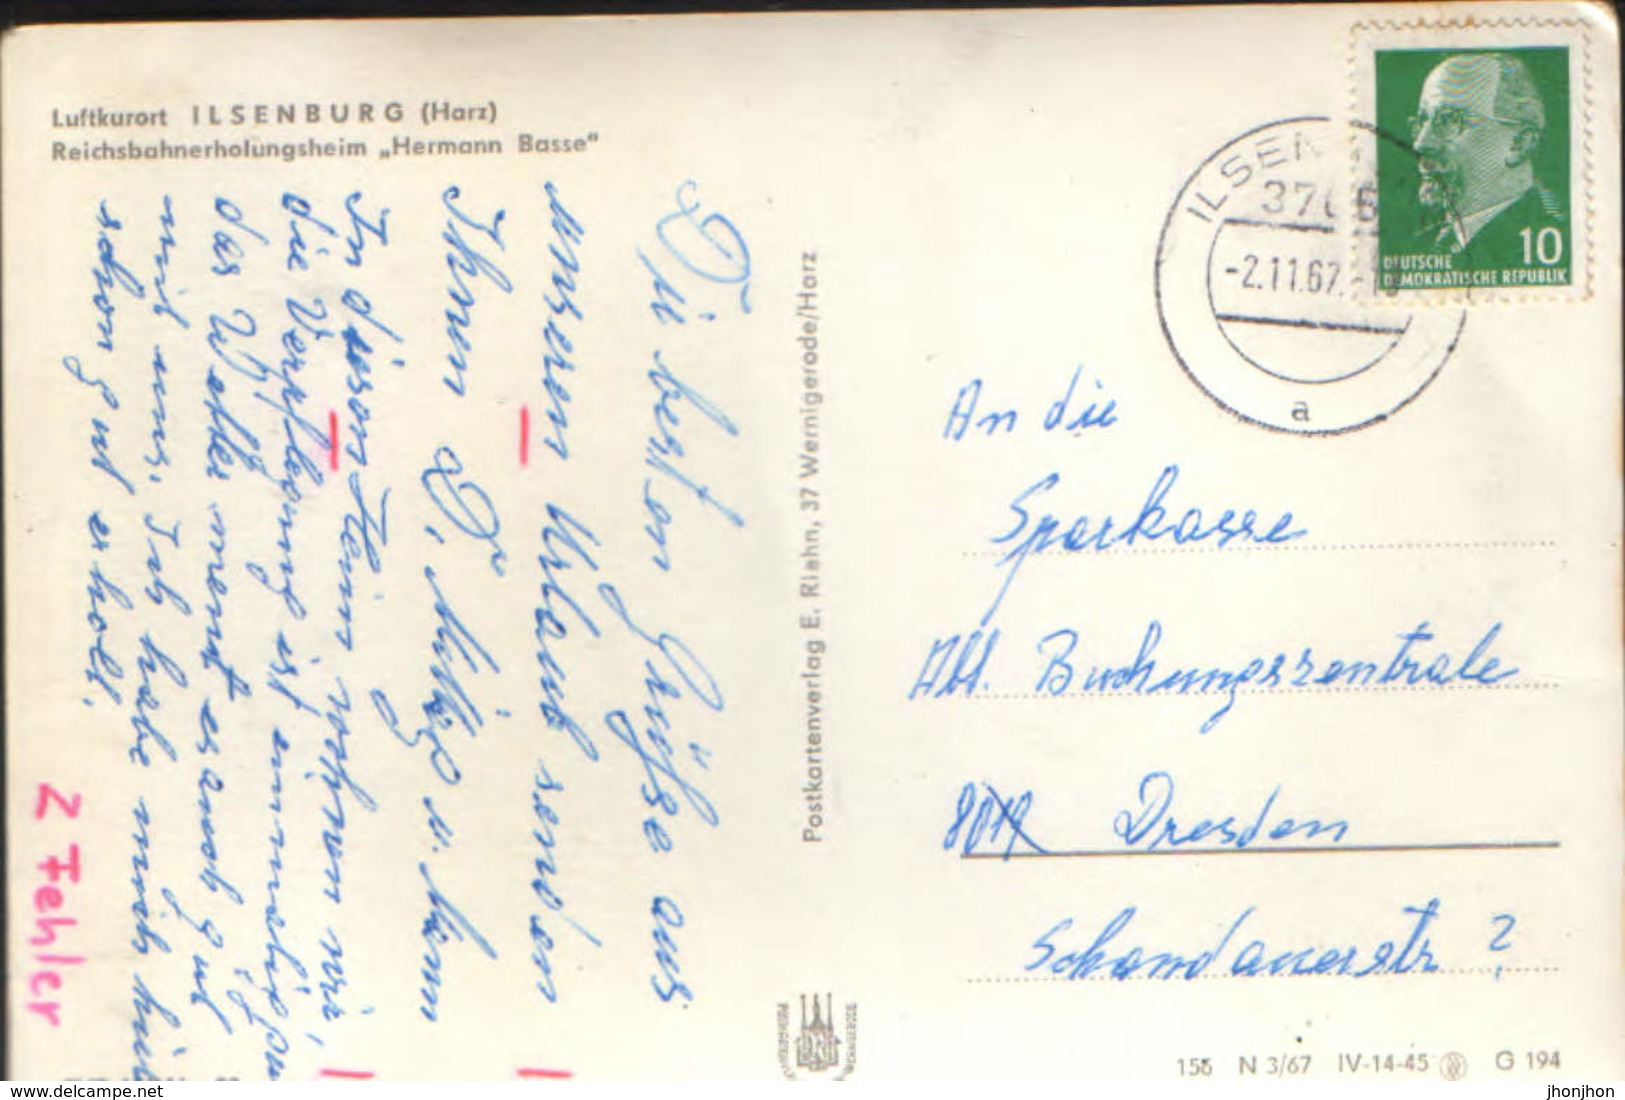 Luftkurort ILSENBURG (Harz)
Reichsbahnerholungsheim „Hermann Basse"
Die besten Grüße aus
unseren Urlaub senden
Ihnen D. u. Mann
In diesen Heim wohnen wir,
die Verpflegung ist einmalig
das Wetter meint es auch gut
mit uns. Ich habe mich hier
schon gut erholt.
2 Fehler
Postkartenverlag E. Riehn, 37 Wernigerode/Harz
ILSEN
-2.11.67.-
a
10
DEUTSCHE
DEMOKRATISCHE REPUBLIK
An die
Sparkasse
Abt. Buchungszentrale
8019 Dresden
Schandauerstr ?
155 N 3/67 IV-14-45 G 194
jhonjhon